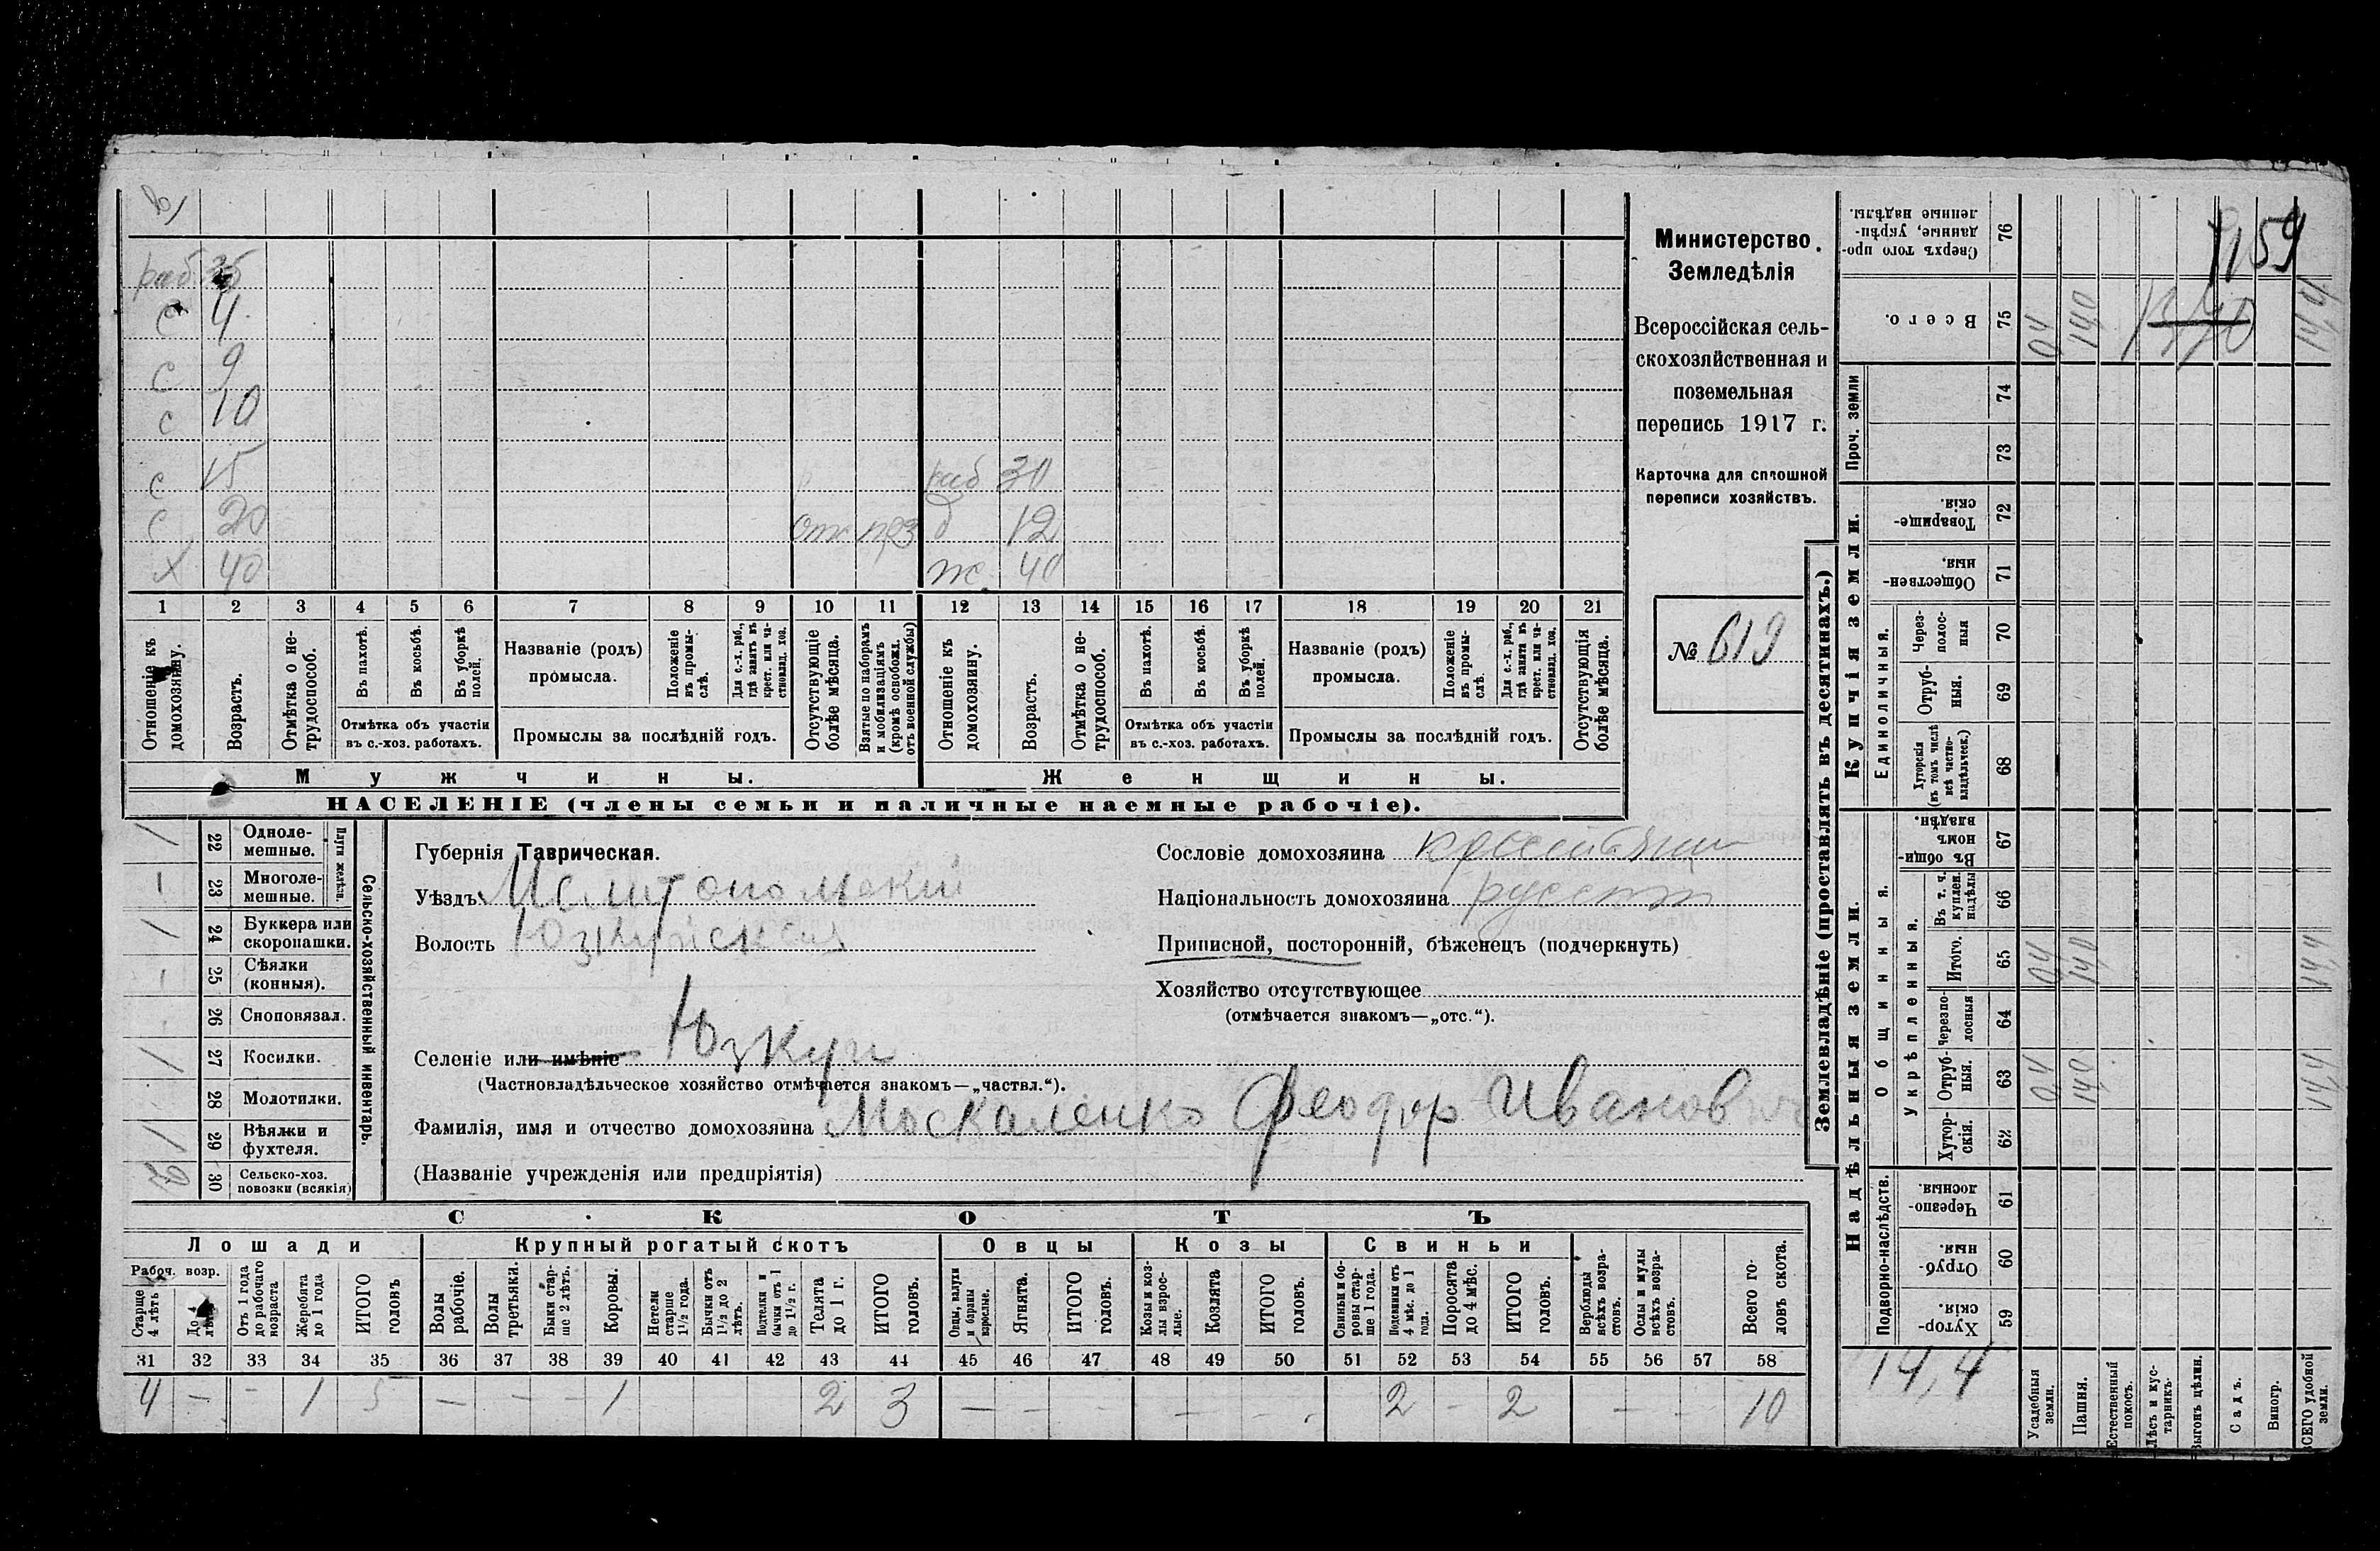 в)
раб. 35
с 4
с 9
с 10
с 15 раб 30
с 20 отс д 12
х 40 ж. 40
1 2 3 4 5 6 7 8 9 10 11 12 13 14 15 16 17 18 19 20 21
Отношеніе къ домохозяину.
Возрастъ.
Отмѣтка о нетрудоспособ.
Въ пахотѣ.
Въ косьбѣ.
Въ уборкѣ полей.
Отмѣтка объ участіи
въ с.-хоз. работахъ.
Названіе (родъ)
промысла.
Положеніе въ промыслѣ.
Для с.-х. раб., гдѣ занятъ въ крест. или частновлад. хоз.
Промыслы за послѣдній годъ.
Отсутствующіе болѣе мѣсяца.
Взятые по наборамъ и мобилизаціямъ (кромѣ освобожд. отъ военной службы)
Отношеніе къ домохозяину.
Возрастъ.
Отмѣтка о нетрудоспособ.
Въ пахотѣ.
Въ косьбѣ.
Въ уборкѣ полей.
Отмѣтка объ участіи
въ с.-хоз. работахъ.
Названіе (родъ)
промысла.
Положеніе въ промыслѣ.
Для с.-х. раб., гдѣ занята въ крест. или частновлад. хоз.
Промыслы за послѣдній годъ.
Отсутствующія болѣе мѣсяца.
Мужчины.
Женщины.
НАСЕЛЕНІЕ (члены семьи и наличные наемные рабочіе).
Министерство
Земледѣлія
Всероссійская сель-
скохозяйственная и
поземельная
перепись 1917 г.
Карточка для сплошной
переписи хозяйствъ.
№ 619
Сельско-хозяйственный инвентарь.
Плуги желѣзн.
/ 22 Одноле-
мешные.
1 23 Многоле-
мешные.
/ 24 Буккера или
скоропашки.
1 25 Сѣялки
(конныя).
26 Сноповязал.
/ 27 Косилки.
28 Молотилки.
/ 29 Вѣялки и
фухтеля.
2 30 Сельско-хоз.
повозки (всякія)
Губернія Таврическая.
Уѣздъ Мелитопольскій
Волость Юзкуйская
Селеніе или имѣніе Юзкуи
(Частновладѣльческое хозяйство отмѣчается знакомъ—„частвл.“).
Фамилія, имя и отчество домохозяина Москаленко Феодор Иванович
(Названіе учрежденія или предпріятія)
Сословіе домохозяина крестьянин
Національность домохозяина русский
Приписной, посторонній, бѣженецъ (подчеркнуть)
Хозяйство отсутствующее
(отмѣчается знакомъ—„отс.“).
СКОТЪ
Лошади
Крупный рогатый скотъ
Овцы
Козы
Свиньи
Рабоч. возр.
Старше 4 лѣтъ
До 4 лѣтъ
Отъ 1 года до рабочаго возраста
Жеребята до 1 года
ИТОГО головъ
Волы рабочіе.
Волы третьяки.
Быки старше 2 лѣтъ.
Коровы.
Нетели старше 1½ года.
Бычки отъ 1½ до 2 лѣтъ.
Подтелки и бычки отъ 1 до 1½ г.
Телята до 1 г.
ИТОГО головъ.
Овцы, валухи и бараны взрослые.
Ягнята.
ИТОГО головъ.
Козы и козлы взрослые.
Козлята
ИТОГО головъ.
Свиньи и боровы старше 1 года.
Подсвинки отъ 4 мѣс. до 1 года.
Поросята до 4 мѣс.
ИТОГО головъ.
Верблюды всѣхъ возрастовъ.
Ослы и мулы всѣхъ возрастовъ.
Всего головъ скота.
31 32 33 34 35 36 37 38 39 40 41 42 43 44 45 46 47 48 49 50 51 52 53 54 55 56 57 58
4 — - 1 5 — - - 1 2 3 — - - — - . 2 - 2 - - 10
Землевладѣніе (проставлять въ десятинахъ.)
Надѣльныя земли.
Купчія земли.
Проч. земли
Подворно-наслѣдств.
Общинныя.
Укрѣпленныя.
Единоличныя.
Сверхъ того проданные, укрѣпленные надѣлы. 76
Всего. 75 0,4 14,0 14,4
74
73
Товарищескія. 72
Общественныя. 71
Черезполосныя 70
Отрубныя. 69
Хуторскія (въ томъ числѣ всѣ частновладѣльческ.) 68
Въ общинномъ владѣн. 67
Въ т. ч. куплен. надѣлы 66
Итого. 65 0,4 14,0 14,4
Черезполосныя 64
Отрубныя. 63 0,4 14,0 14,4
Хуторскія. 62
Черезполосныя. 61
Отрубныя. 60
Хуторскія. 59
14,4
Усадебныя земли.
Пашня.
Естественный покосъ.
Лѣсъ и кустарникъ.
Выгонъ цѣлин.
Садъ.
Виногр.
ВСЕГО удобной земли.